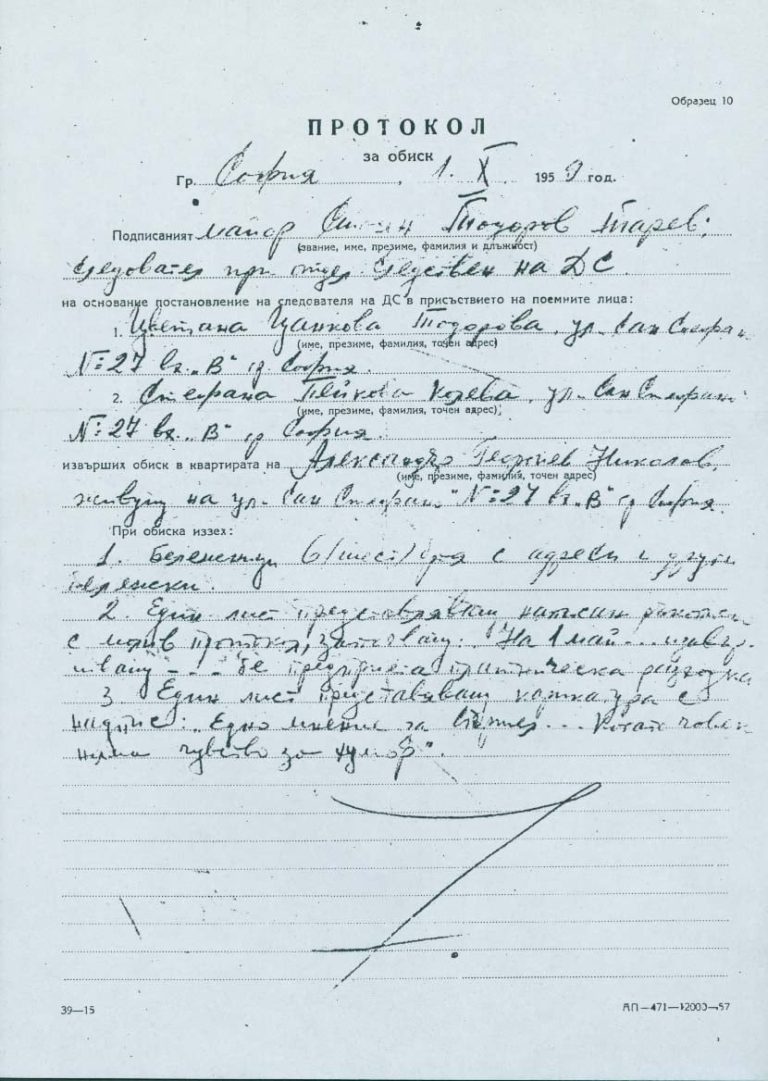 Образец 10
ПРОТОКОЛ
за обиск
Гр. София, 1. X. 1959 год.
Подписаният майор Тодоров
(звание, име, презиме, фамилия и длъжност)
следовател при отдел следствен на ДС
на основание постановление на следователя на ДС в присъствието на поемните лица:
1. Цветана Цанкова Тодорова, ул. Сан Стефан
(име, презиме, фамилия, точен адрес)
№ 27 вх. „В" гр София.
2. Стефана Пейкова, ул. Сан Стефан
(име, презиме, фамилия, точен адрес)
№ 27 вх. „В" гр София.
извърших обиск в квартирата на Александър Георгиев Николов,
(име, презиме, фамилия, точен адрес)
живущ на ул. Сан Стефан" № 27 вх. „В" гр София.
При обиска иззех:
1. Бележници 6/шест/ броя с адреси и други
бележки.
2. Един лист представляващ написан
с молив протокол, започващ: „На 1 май...
... бе предприета разходка
3. Един лист представяващ карикатура с
надпис: „Едно мнение за ... Когато човек
няма чувство за хумор".
39—15
АП—471—12000—57